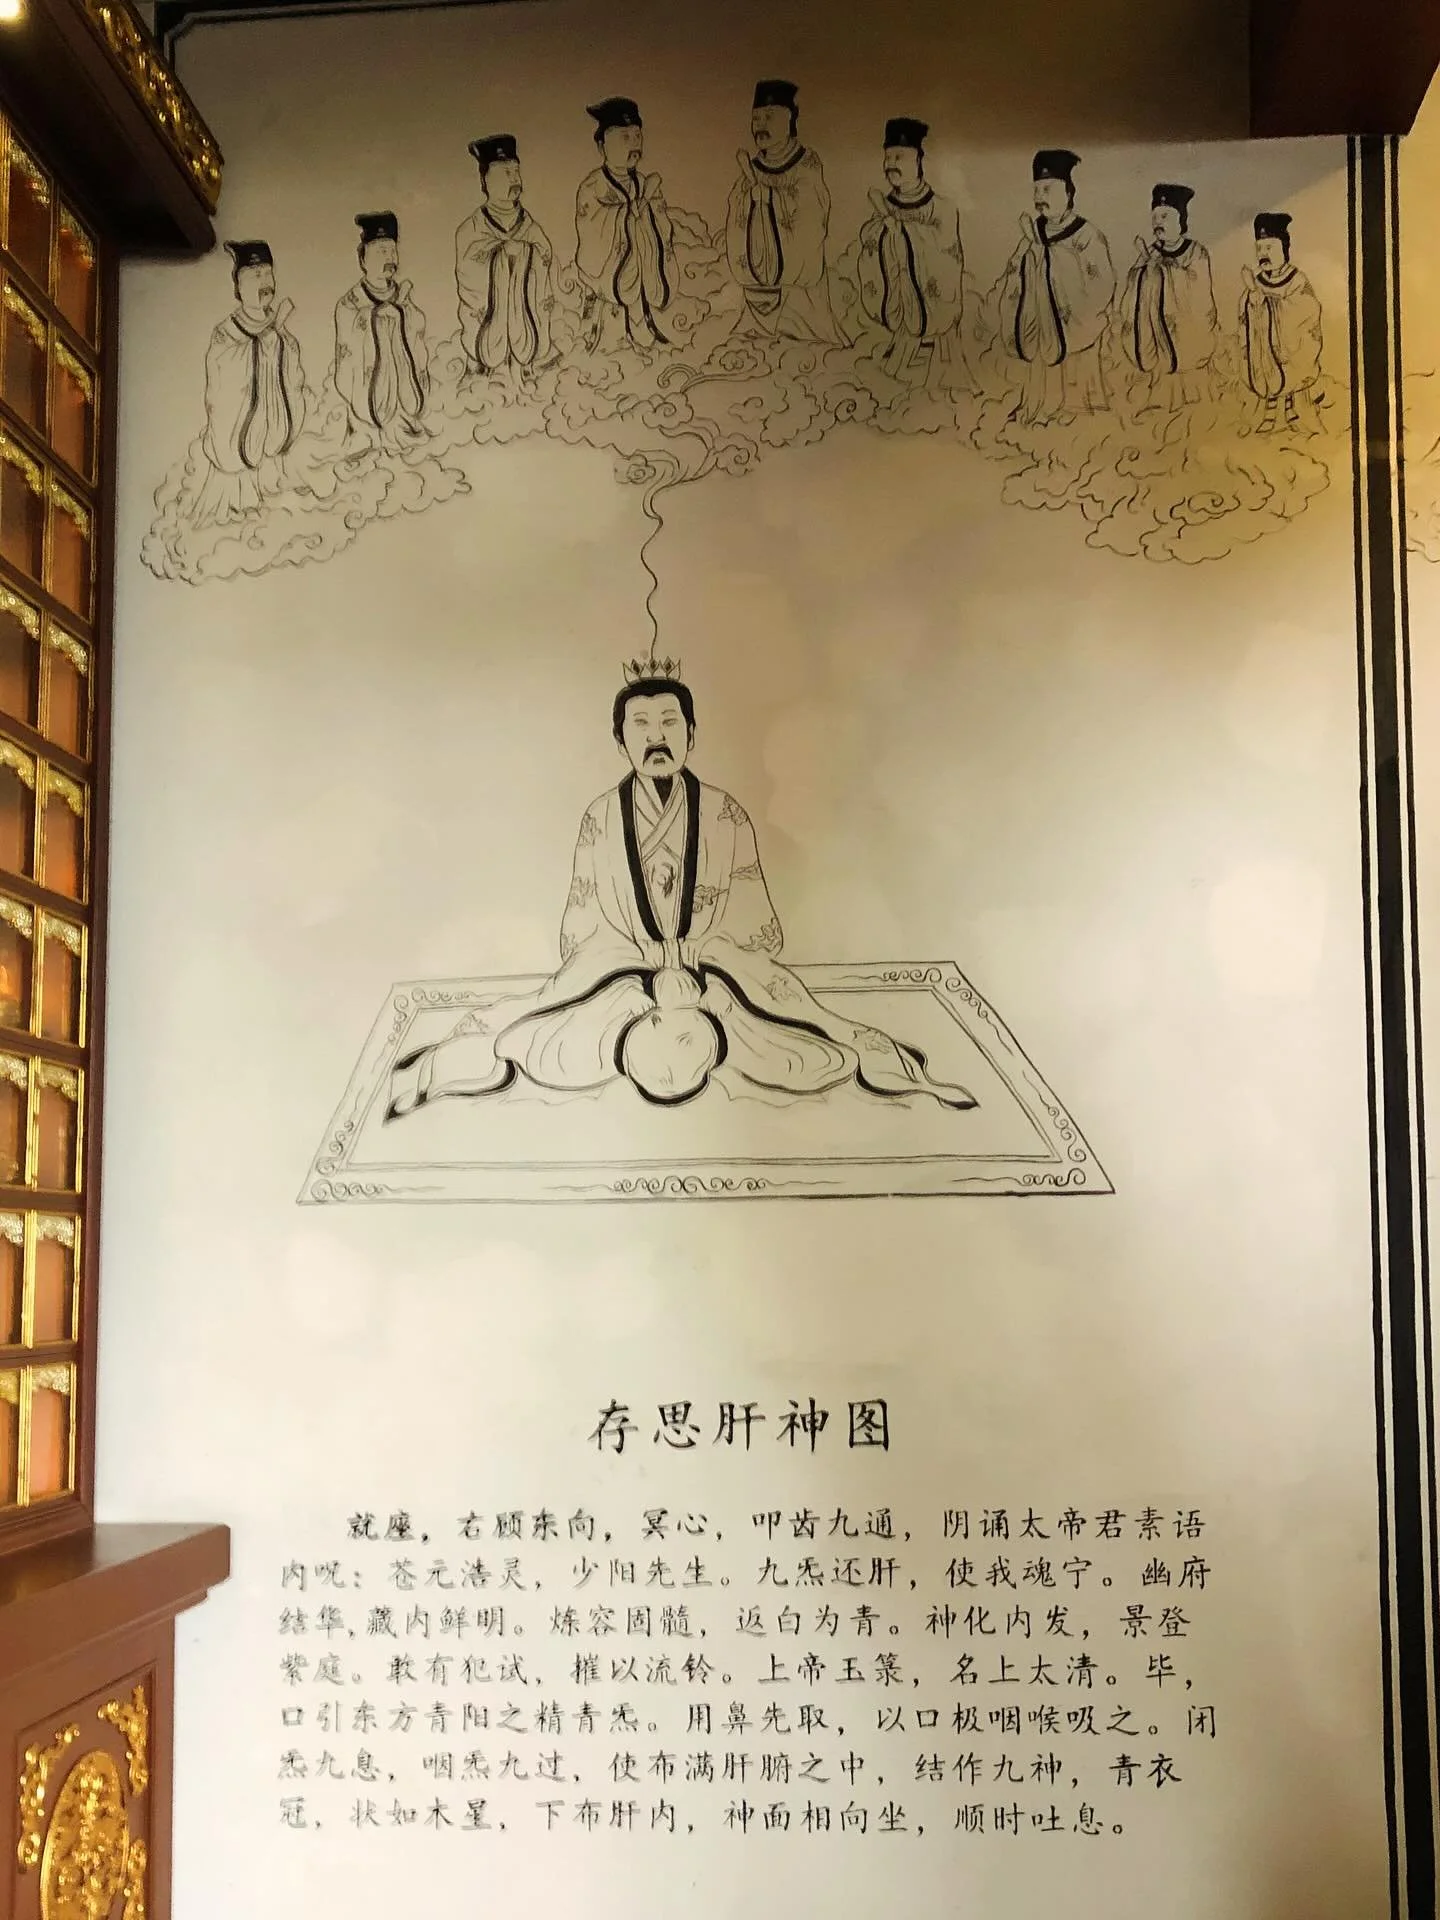 存思肝神图
就座，右顾东向，冥心，叩齿九通，阴诵太帝君素语
内呪：苍元浩灵，少阳先生。九炁还肝，使我魂宁。幽府
结华，藏内鲜明。炼容固髓，返白为青。神化内发，景登
紫庭。敢有犯试，摧以流铃。上帝玉箓，名上太清。毕，
口引东方青阳之精青炁。用鼻先取，以口极咽喉吸之。闭
炁九息，咽炁九过，使布满肝腑之中，结作九神，青衣
冠，状如木星，下布肝内，神面相向坐，顺时吐息。